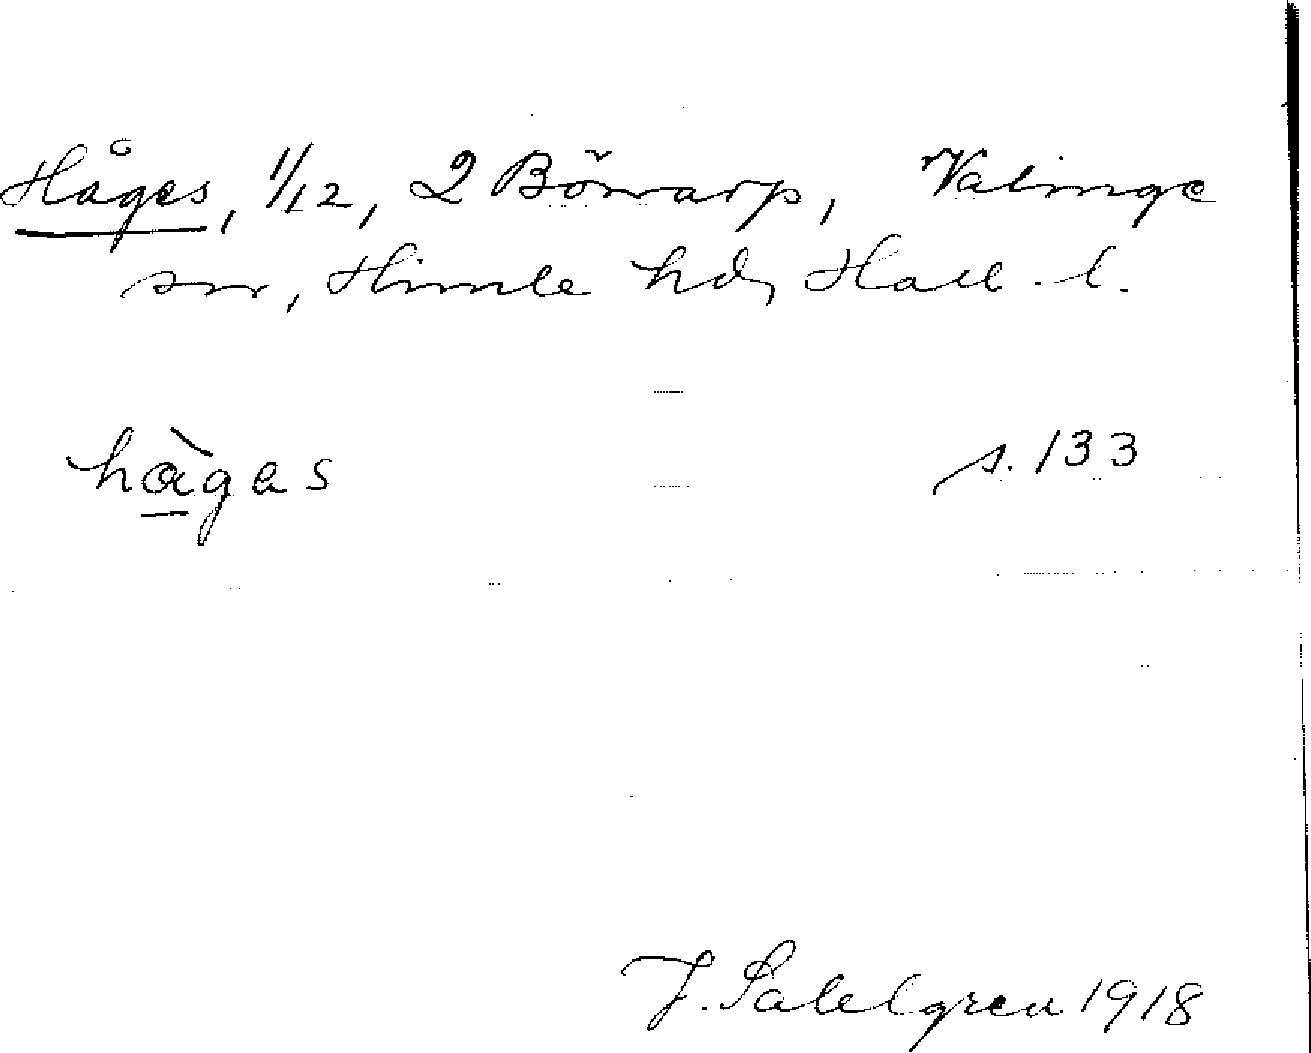 Håges, 1/12, 2 Böwarp, Valinge
sn, Himle hd, Hall. l.
hàgas s. 133
J. Sahlgren 1918